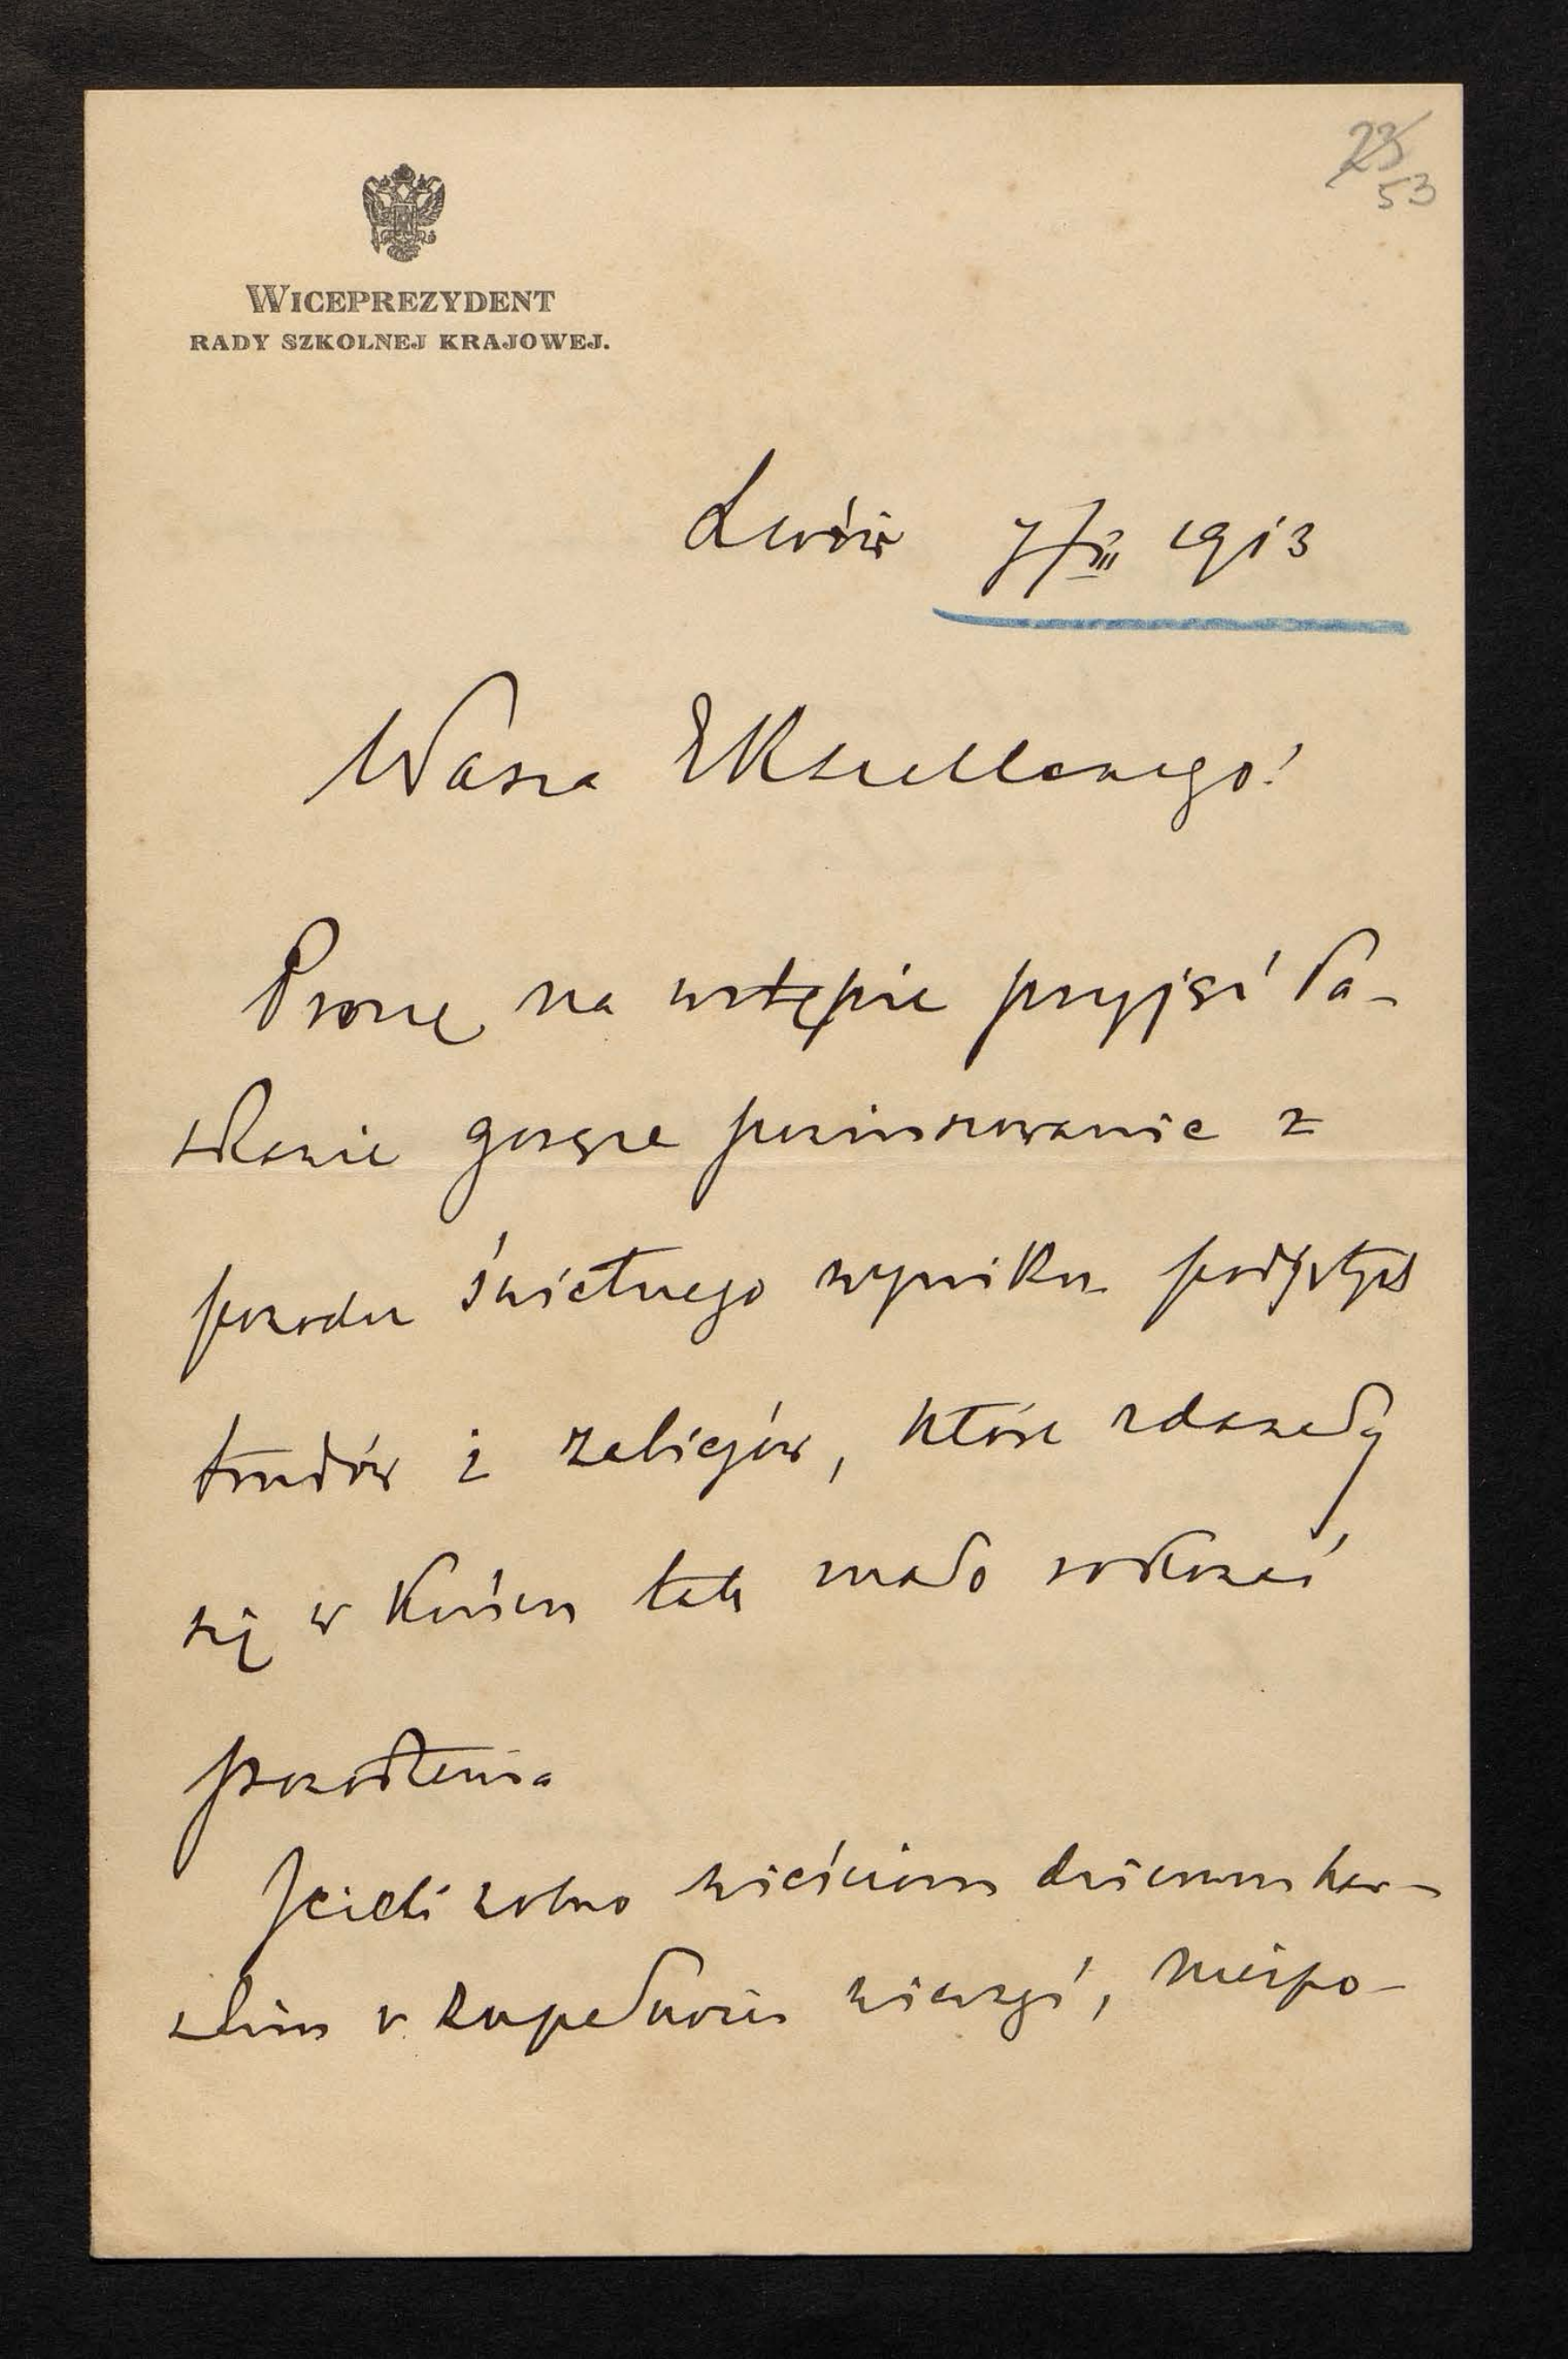 23
53
WICEPREZYDENT
RADY SZKOLNEJ KRAJOWEJ.
Lwów 7/III 1913
Wasza Ekscellencyo!
Proszę na wstępie przyjąć ła-
skawie gorące powinszowanie z
powodu świetnego wyniku podjętych
trudów i zabiegów, które zdawały
się w końcu tak mało rokować
powodzenia
Jeżeli wolno wieściom dziennikar-
skim w zupełności wierzyć, niespo-